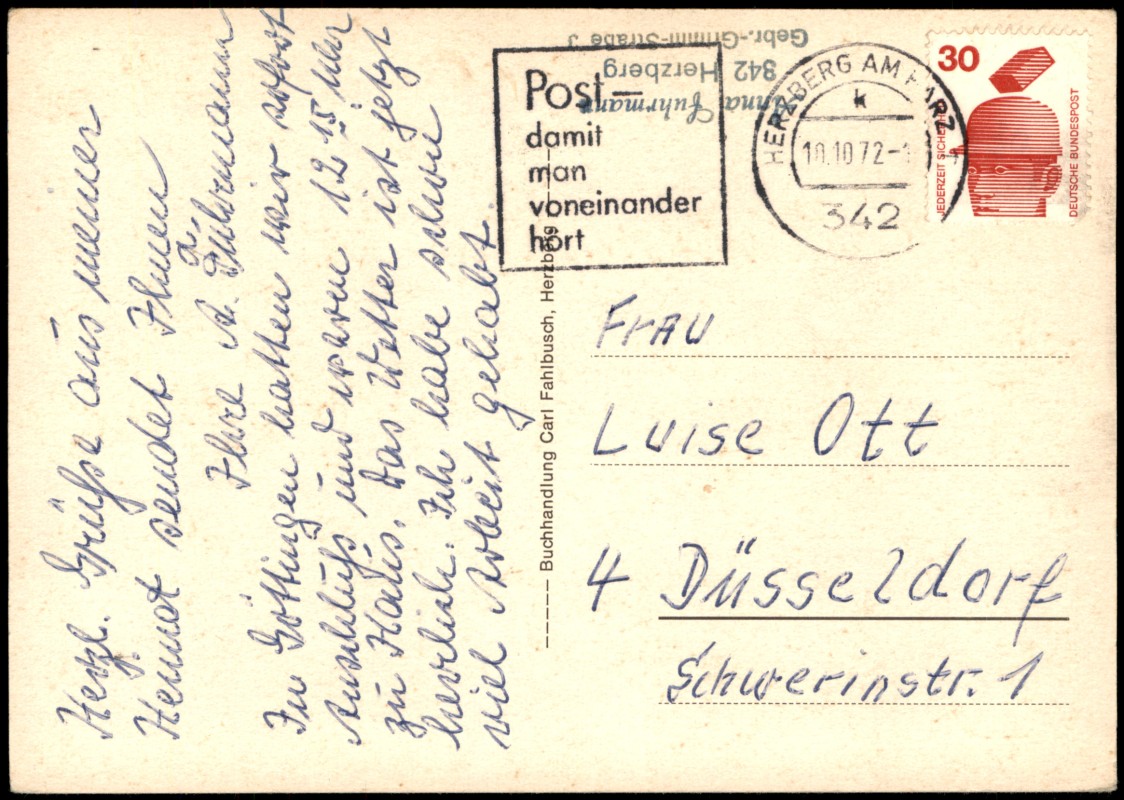 Herzl. Grüße aus meiner
Heimat sendet Ihnen
Ihre A. Fuhrmann
In Göttingen hatten wir sofort
Anschluß und waren 12 15 Uhr
zu Haus. Das Wetter ist jetzt
herrlich. Ich habe schon
viel Arbeit gehabt
Buchhandlung Carl Fahlbusch, Herzberg
Post–
damit
man
voneinander
hört
Anna Fuhrmann
342 Herzberg
Gebr.-Grimm-Straße 3
HERZBERG AM HARZ
k
10.10.72
342
30
JEDERZEIT SICHERHEIT
DEUTSCHE BUNDESPOST
Frau
Luise Ott
4 Düsseldorf
Schwerinstr. 1